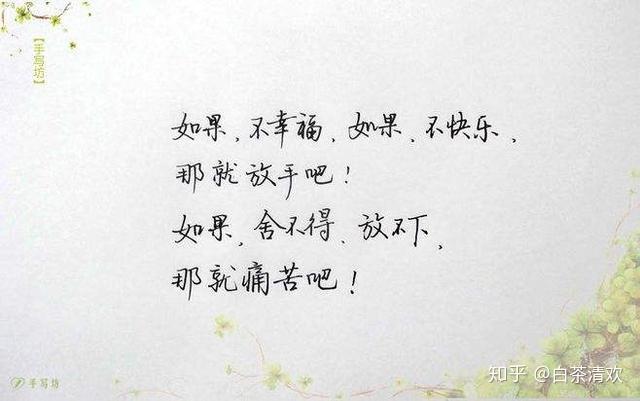 【手写坊】
如果、不幸福、如果、不快乐、
那就放手吧！
如果、舍不得、放不下、
那就痛苦吧！
手写坊
知乎 @白茶清欢